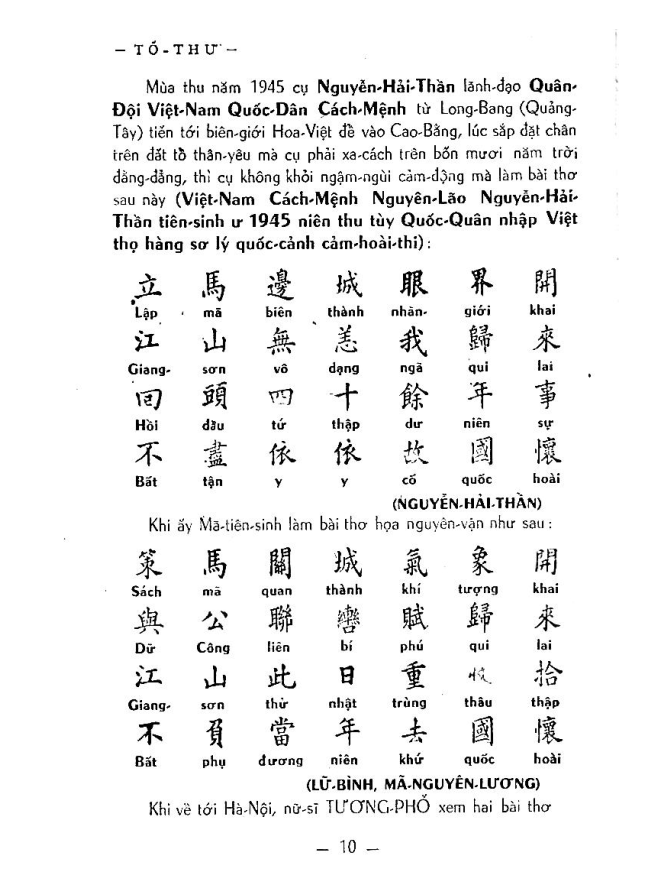 — TỐ-THƯ —
Mùa thu năm 1945 cụ Nguyễn-Hải-Thần lãnh-đạo Quân-
Đội Việt-Nam Quốc-Dân Cách-Mệnh từ Long-Bang (Quảng-
Tây) tiến tới biên-giới Hoa-Việt để vào Cao-Bằng, lúc sắp đặt chân
trên đất tổ thân-yêu mà cụ phải xa-cách trên bốn mươi năm trời
đằng-đẳng, thì cụ không khỏi ngậm-ngùi cảm-động mà làm bài thơ
sau này (Việt-Nam Cách-Mệnh Nguyên-Lão Nguyễn-Hải-
Thần tiên-sinh ư 1945 niên thu tùy Quốc-Quân nhập Việt
thọ hàng sơ lý quốc-cảnh cảm-hoài-thi):
立 馬 邊 城 眼 界 開
Lập mã biên thành nhãn- giới khai
江 山 無 恙 我 歸 來
Giang- sơn vô dạng ngã qui lai
回 頭 四 十 餘 年 事
Hồi đầu tứ thập dư niên sự
不 盡 依 依 故 國 懷
Bất tận y y cố quốc hoài
(NGUYỄN-HẢI-THẦN)
Khi ấy Mã-tiên-sinh làm bài thơ họa nguyên-vận như sau:
策 馬 關 城 氣 象 開
Sách mã quan thành khí tượng khai
與 公 聯 轡 賦 歸 來
Dữ Công liên bí phú qui lai
江 山 此 日 重 收 拾
Giang- sơn thử nhật trùng thâu thập
不 負 當 年 去 國 懷
Bất phụ đương niên khứ quốc hoài
(LỮ-BÌNH, MÃ-NGUYÊN-LƯƠNG)
Khi về tới Hà-Nội, nữ-sĩ TƯƠNG-PHỐ xem hai bài thơ
— 10 —